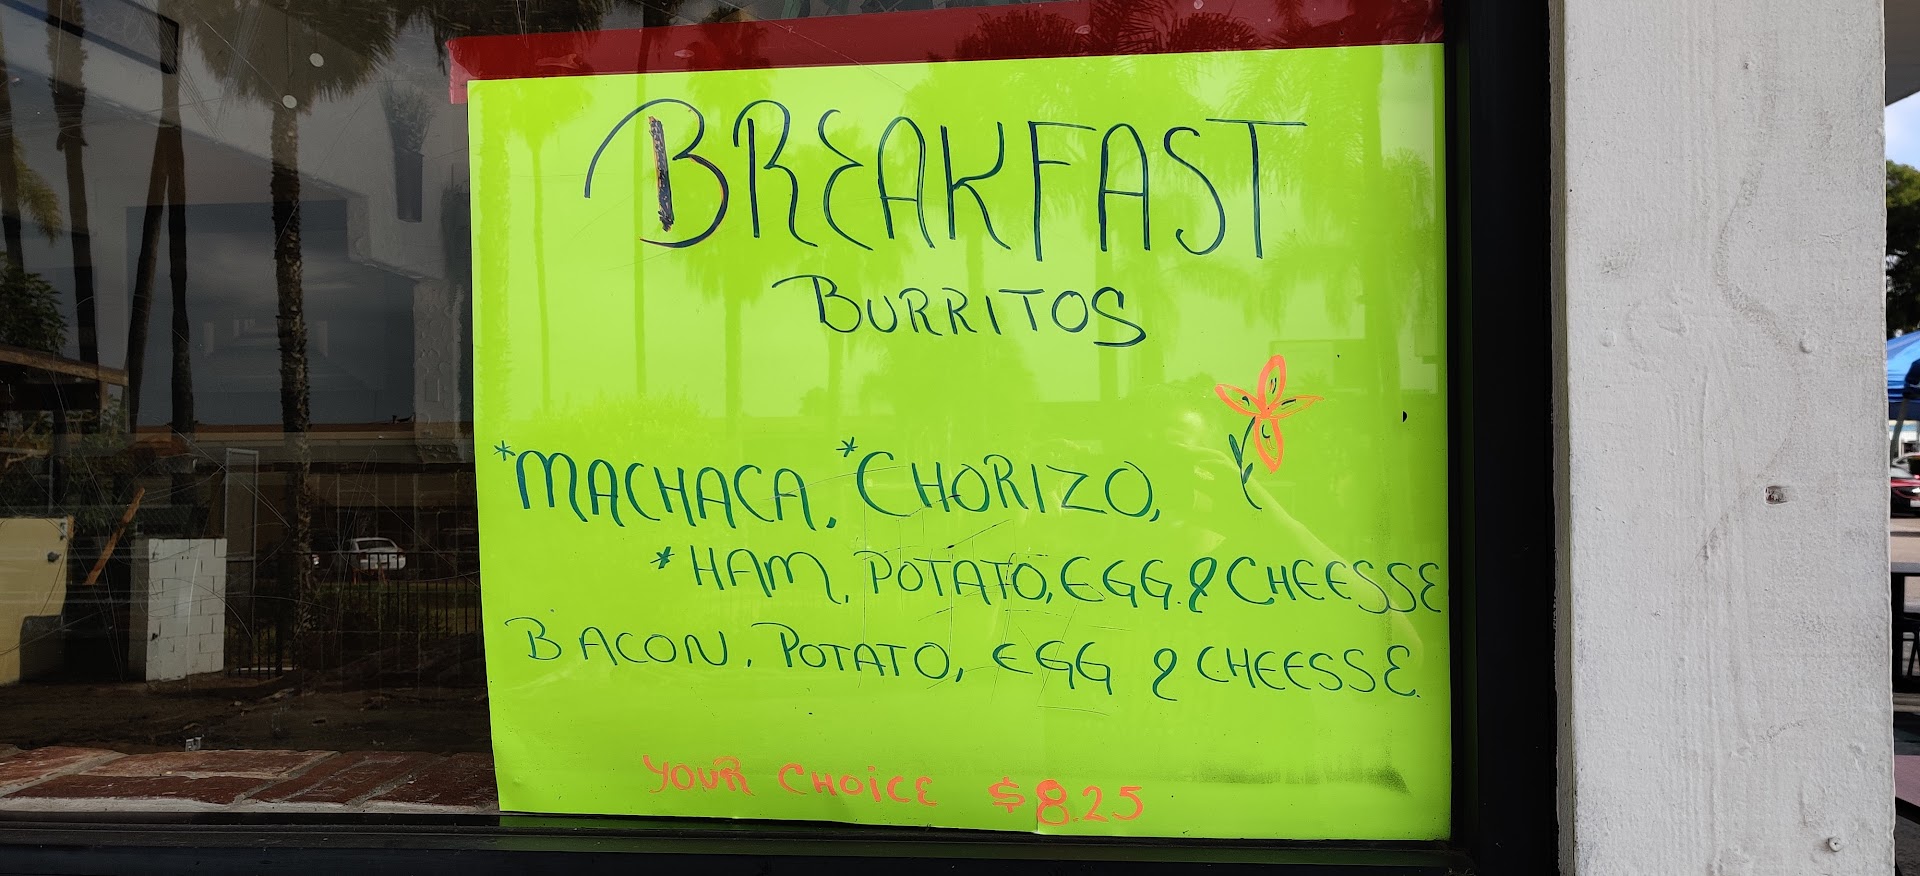 BREAKFAST
BURRITOS
*MACHACA, *CHORIZO,
*HAM, POTATO, EGG & CHEESSE
BACON, POTATO, EGG & CHEESSE.
YOUR CHOICE $8.25